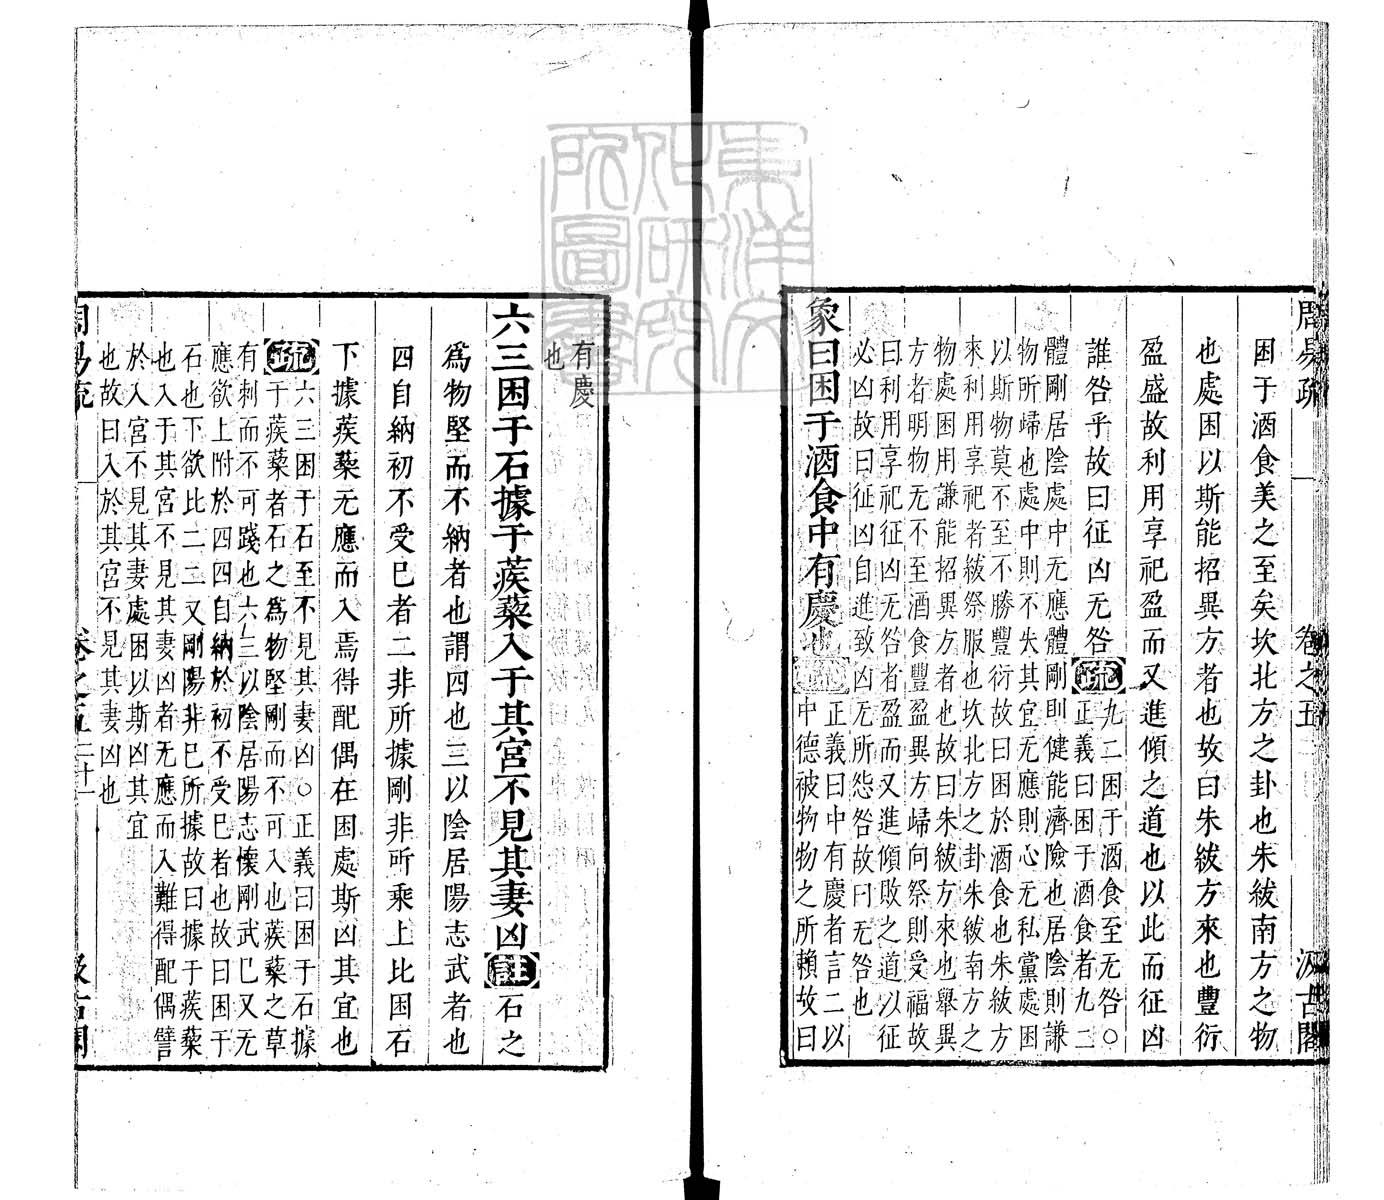 周易疏 卷之五 汲古閣
困于酒食美之至矣坎北方之卦也朱紱南方之物
也處困以斯能招異方者也故曰朱紱方來也豐衍
盈盛故利用享祀盈而又進傾之道也以此而征凶
誰咎乎故曰征凶无咎疏九二困于酒食至无咎○
正義曰困于酒食者九二
體剛居陰處中无應體剛則健能濟險也居陰則謙
物所歸也處中則不失其宜无應則心无私黨處困
以斯物莫不至不勝豐衍故曰困於酒食也朱紱方
來利用享祀者紱祭服也坎北方之卦朱紱南方之
物處困用謙能招異方者也故曰朱紱方來也舉異
方者明物无不至酒食豐盈異方歸向祭則受福故
曰利用享祀征凶无咎者盈而又進傾敗之道以征
必凶故曰征凶自進致凶无所怨咎故曰无咎也
象曰困于酒食中有慶也疏正義曰中有慶者言二以
中德被物物之所賴故曰
有慶
也
六三困于石據于蒺蔾入于其宮不見其妻凶註石之
爲物堅而不納者也謂四也三以陰居陽志武者也
四自納初不受已者二非所據剛非所乘上比困石
下據蒺蔾无應而入焉得配偶在困處斯凶其宜也
疏六三困于石至不見其妻凶○正義曰困于石據
于蒺蔾者石之爲物堅剛而不可入也蒺蔾之草
有刺而不可踐也六三以陰居陽志懷剛武已又无
應欲上附於四四自納於初不受已者也故曰困于
石也下欲比二二又剛陽非已所據故曰據于蒺蔾
也入于其宮不見其妻凶者无應而入難得配偶譬
於入宮不見其妻處困以斯凶其宜
也故曰入於其宮不見其妻凶也
周易疏 卷之五 二十一 汲古閣
東洋文
化研究
所圖書